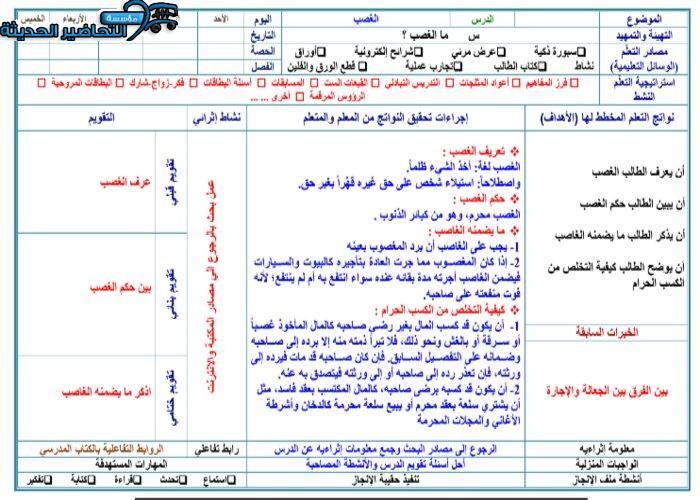 مؤسسة
التحاضير الحديثة
الموضوع
الدرس
الغصب
اليوم
الأحد
الأربعاء
الخميس
التهيئة والتمهيد
س ما الغصب ؟
التاريخ
مصادر التعلم
(الوسائل التعليمية)
سبورة ذكية
عرض مرئي
شرائح إلكترونية
أوراق
نشاط
كتاب الطالب
تجارب عملية
قطع الورق والفلين
الحصة
الفصل
استراتيجية التعلم
النشط
فرز المفاهيم
أعواد المثلجات
التدريس التبادلي
القبعات الست
المسابقات
أسئلة البطاقات
فكر-زواج-شارك
البطاقات المروحية
الرؤوس المرقمة
أخرى ... ...
نواتج التعلم المخطط لها (الأهداف)
إجراءات تحقيق النواتج من المعلم والمتعلم
نشاط إثرائي
التقويم
أن يعرف الطالب الغصب
أن يبين الطالب حكم الغصب
أن يذكر الطالب ما يضمنه الغاصب
أن يوضح الطالب كيفية التخلص من
الكسب الحرام
الخبرات السابقة
بين الفرق بين الجعالة والإجارة
تعريف الغصب :
الغصب لغة: أخذ الشيء ظلماً.
واصطلاحاً: استيلاء شخص على حق غيره قهراً بغير حق.
حكم الغصب :
الغصب محرم، وهو من كبائر الذنوب .
ما يضمنه الغاصب :
1- يجب على الغاصب أن يرد المغصوب بعينه
2- إذا كان المغصوب مما جرت العادة بتأجيره كالبيوت والسيارات
فيضمن الغاصب أجرته مدة بقائه عنده سواء انتفع به أم لم ينتفع؛ لأنه
فوت منفعته على صاحبه.
كيفية التخلص من الكسب الحرام :
1- أن يكون قد كسب المال بغير رضى صاحبه كالمال المأخوذ غصباً
أو سرقة أو بالغش ونحو ذلك، فلا تبرأ ذمته منه إلا برده إلى صاحبه
وضمانه على التفصيل السابق. فإن كان صاحبه قد مات فيرده إلى
ورثته، فإن تعذر رده إلى صاحبه أو إلى ورثته فيتصدق به عنه.
2- أن يكون قد كسبه برضى صاحبه، كالمال المكتسب بعقد فاسد، مثل
أن يشتري سلعة بعقد محرم أو يبيع سلعة محرمة كالدخان وأشرطة
الأغاني والمجلات المحرمة
عمل بحث بالرجوع إلى مصادر المكتبة والانترنت
تقويم قبلي
عرف الغصب
تقويم بنائي
بين حكم الغصب
تقويم ختامي
اذكر ما يضمنه الغاصب
معلومة إثرائية
الرجوع إلى مصادر البحث وجمع معلومات إثرائية عن الدرس
رابط تفاعلي
الروابط التفاعلية بالكتاب المدرسي
الواجبات المنزلية
أحل أسئلة تقويم الدرس والأنشطة المصاحبة
المهارات المستهدفة
أنشطة ملف الإنجاز
تنفيذ حقيبة الإنجاز
استماع
تحدث
قراءة
كتابة
تفكير